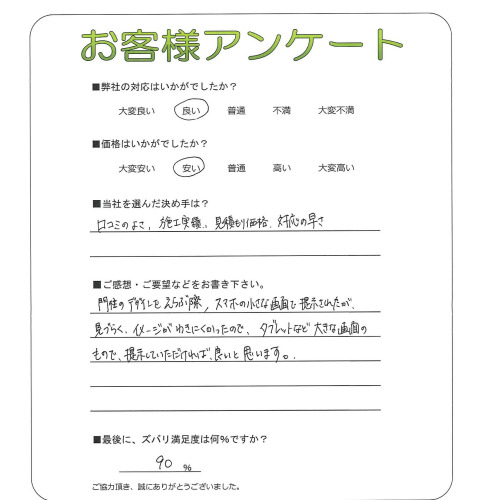 お客様アンケート
■弊社の対応はいかがでしたか？
大変良い 良い 普通 不満 大変不満
■価格はいかがでしたか？
大変安い 安い 普通 高い 大変高い
■当社を選んだ決め手は？
口コミのよさ、施工実績、見積もり価格、対応の早さ
■ご感想・ご要望などをお書き下さい。
門柱のデザインをえらぶ際、スマホの小さな画面で提示されたが、
見づらく、イメージがわきにくかったので、タブレットなど大きな画面の
もので、提示していただければ、良いと思います。
■最後に、ズバリ満足度は何%ですか？
90 %
ご協力頂き、誠にありがとうございました。